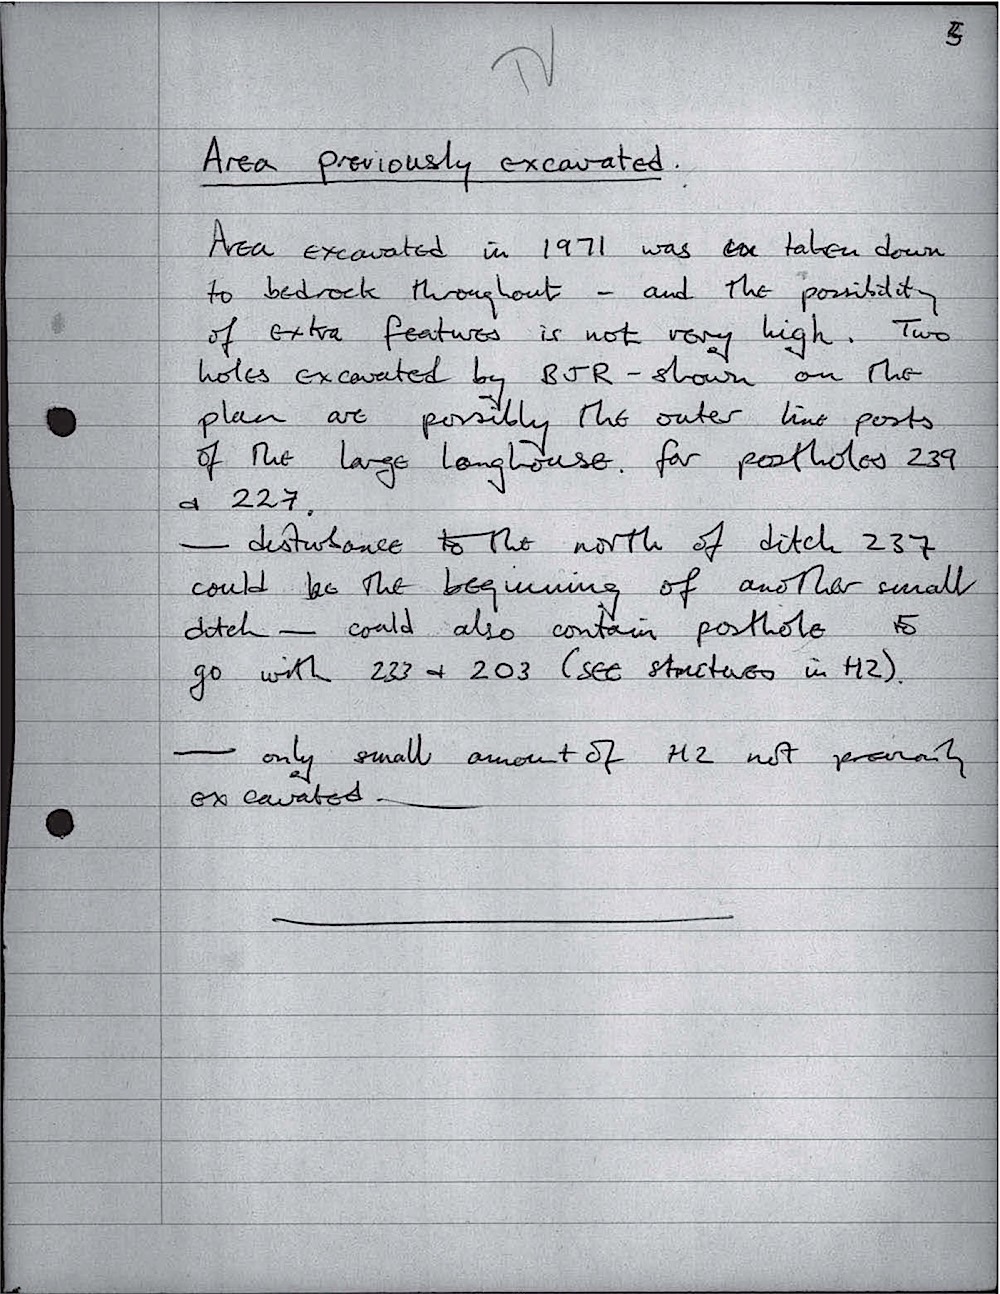 5
Area previously excavated.
Area excavated in 1971 was ex taken down
to bedrock throughout - and the possibility
of extra features is not very high. Two
holes excavated by BJR - shown on the
plan are possibly the outer line posts
of the large longhouse. for postholes 239
& 227.
— disturbance to the north of ditch 237
could be the beginning of another small
ditch — could also contain posthole to
go with 233 & 203 (see structures in H2).
— only small amount of H2 not previously
excavated.